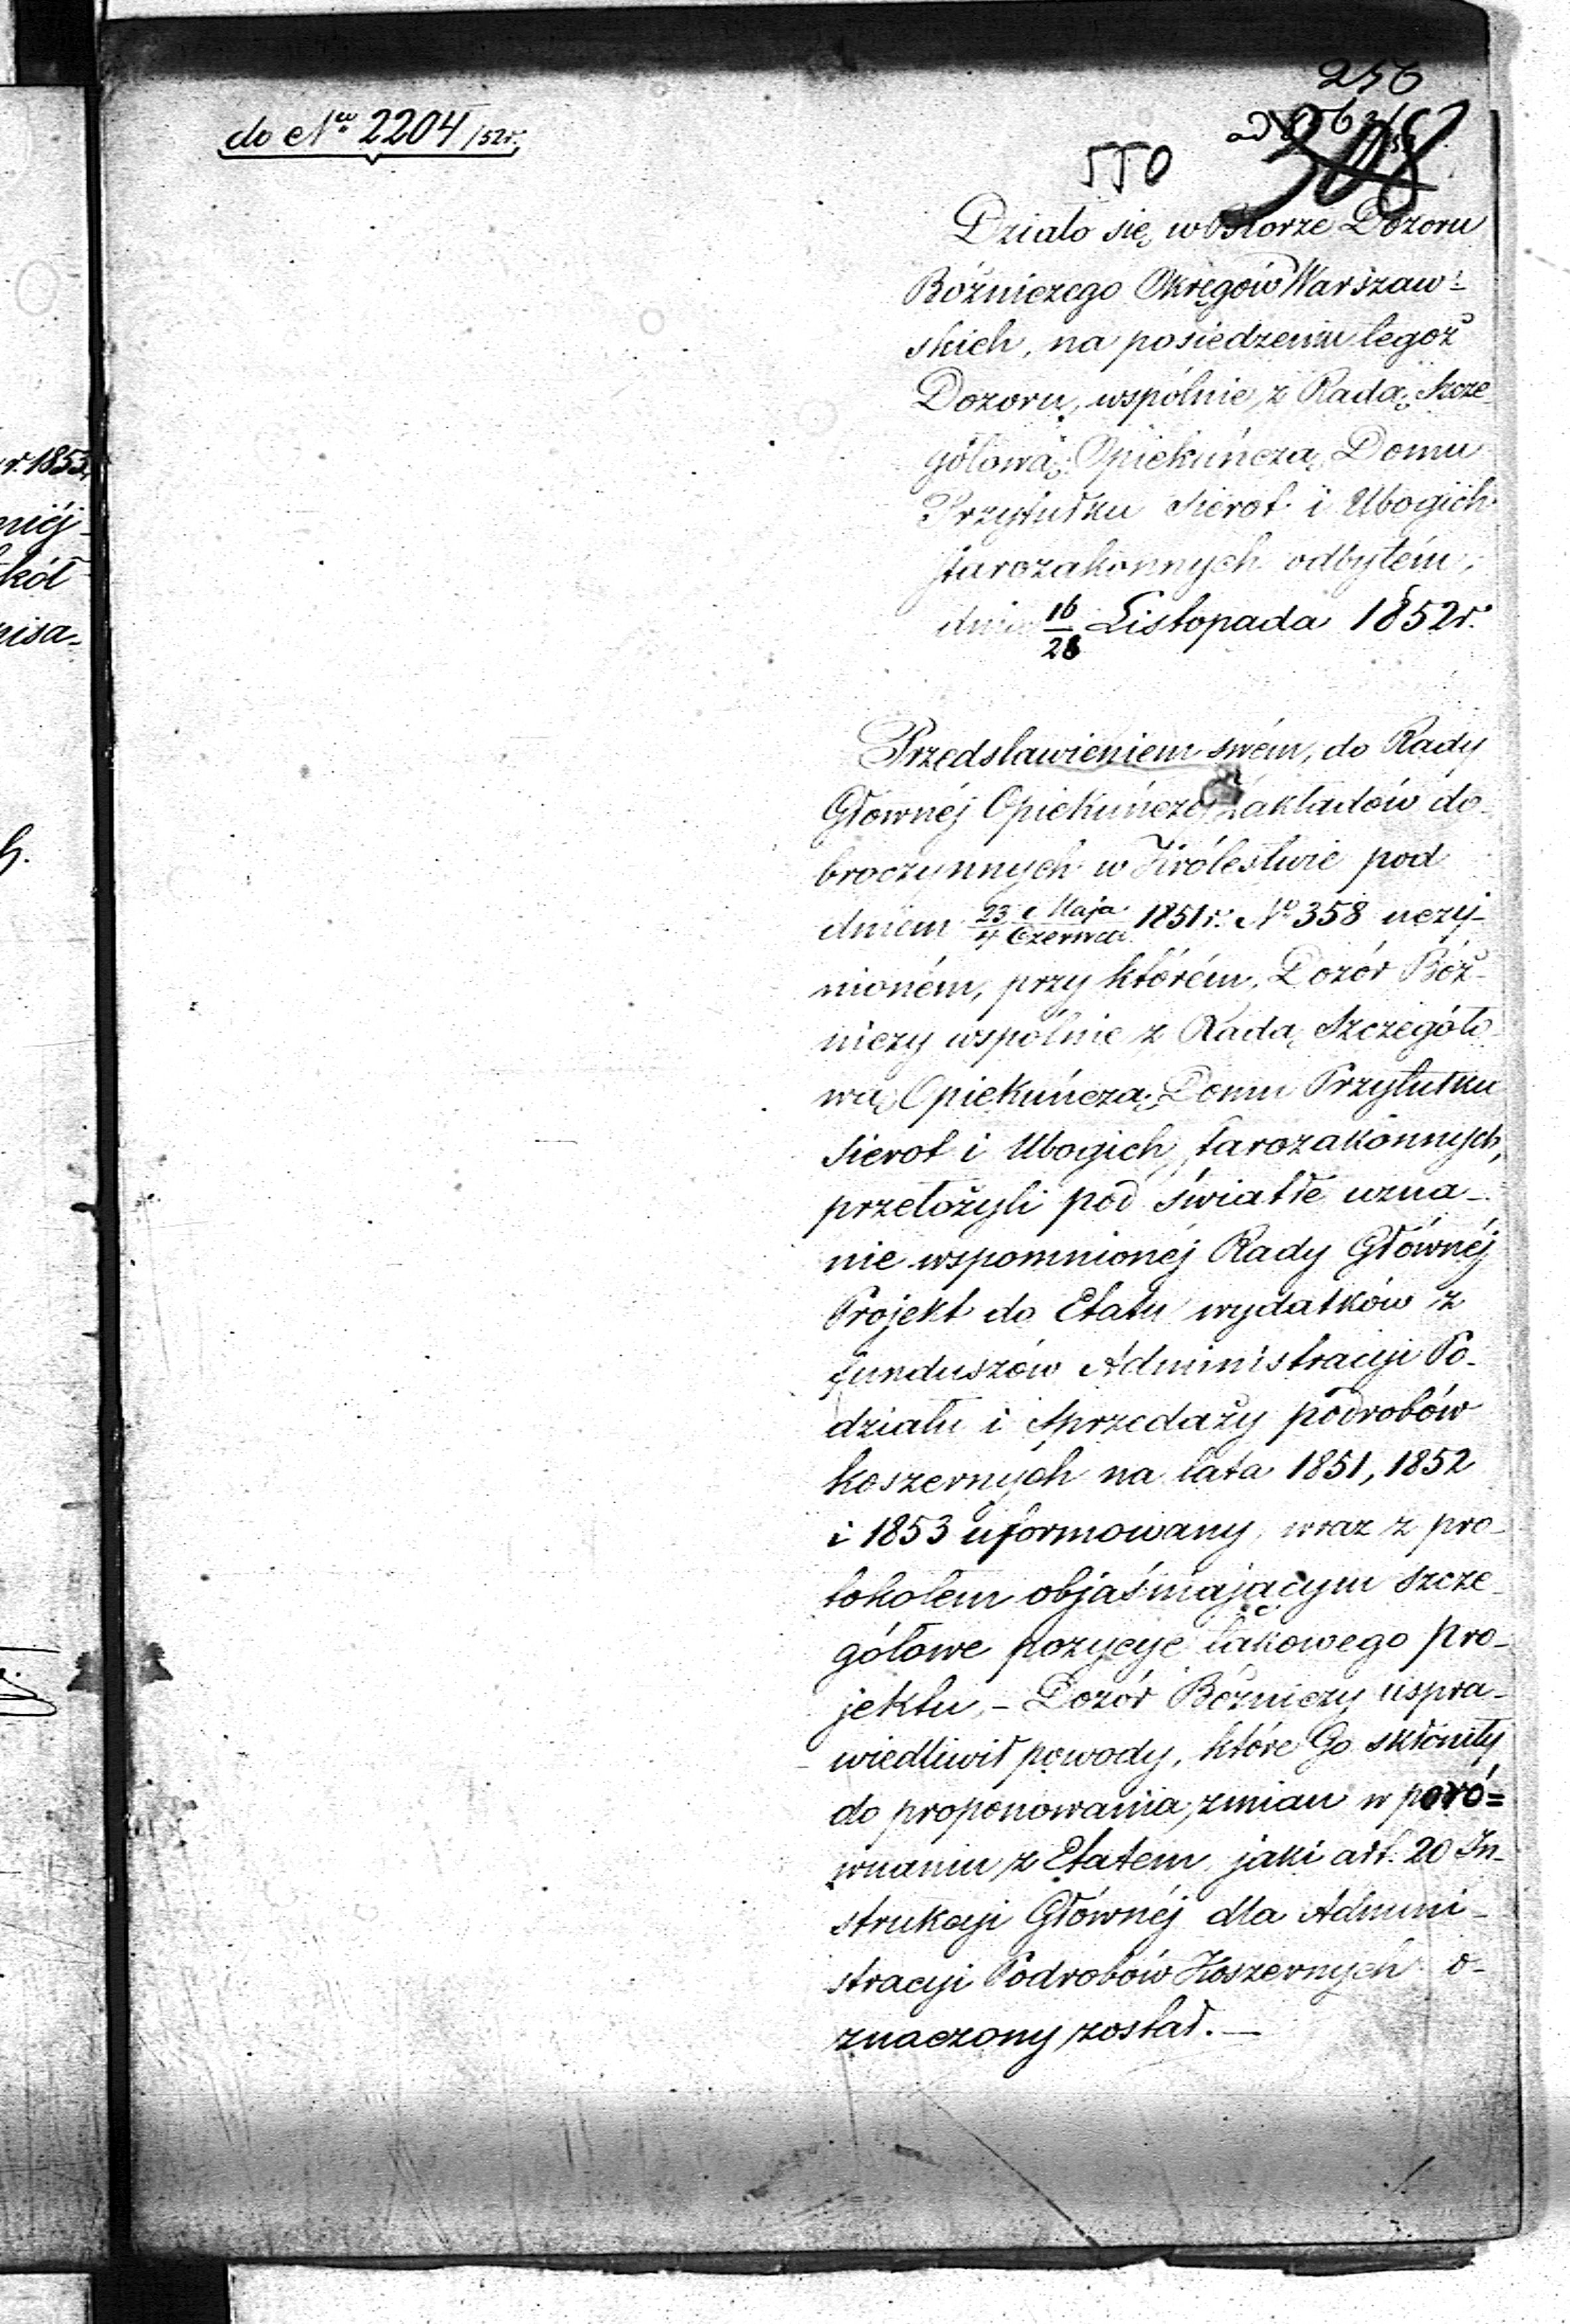 r. 1853,
niéj
kół
pisa-
do Nru 2204/52r.
256
308
550
Działo się w Biórze Dozoru
Bóżniczego Okręgów Warszaw-
skich, na posiedzeniu tegoż
Dozoru, wspólnie z Radą Szcze-
gółową Opiekuńczą Domu
Przytułku Sierot i Ubogich
Starozakonnych odbytém,
dnia 16/28 Listopada 1852 r.
Przedstawieniem swém, do Rady
Głównéj Opiekuńczéj Zakładów do-
broczynnych w Królestwie pod
dniem 23 Maja/4 Czerwca 1851 r. No 358 uczy-
nioném, przy którém, Dozór Bóż-
niczy wspólnie z Radą Szczegóło-
wą Opiekuńczą Domu Przytułku
Sierot i Ubogich Starozakonnych,
przełożyli pod światłe uzna-
nie wspomnionéj Rady Głównéj
Projekt do Etatu wydatków z
funduszów Administracyi Po-
działu i Sprzedaży podrobów
koszernych na lata 1851, 1852
i 1853 uformowany, wraz z pro-
tokołem objaśniającym szcze-
gółowe pozycye takowego pro-
jektu, – Dozór Bóżniczy uspra-
wiedliwił powody, które Go skłoniły
do proponowania zmian w poró=
wnaniu z Etatem, jaki art. 20 In-
strukcyi Głównéj dla Admini-
stracyi Podrobów Koszernych o-
znaczony został. –